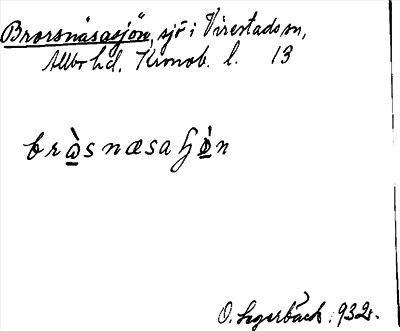 Brorsnäsasjön, sjö i Virestads sn,
Allbo hd. Kronob. l. 13
bròsnæsaʃǿn
O. Legerbäck 1932.